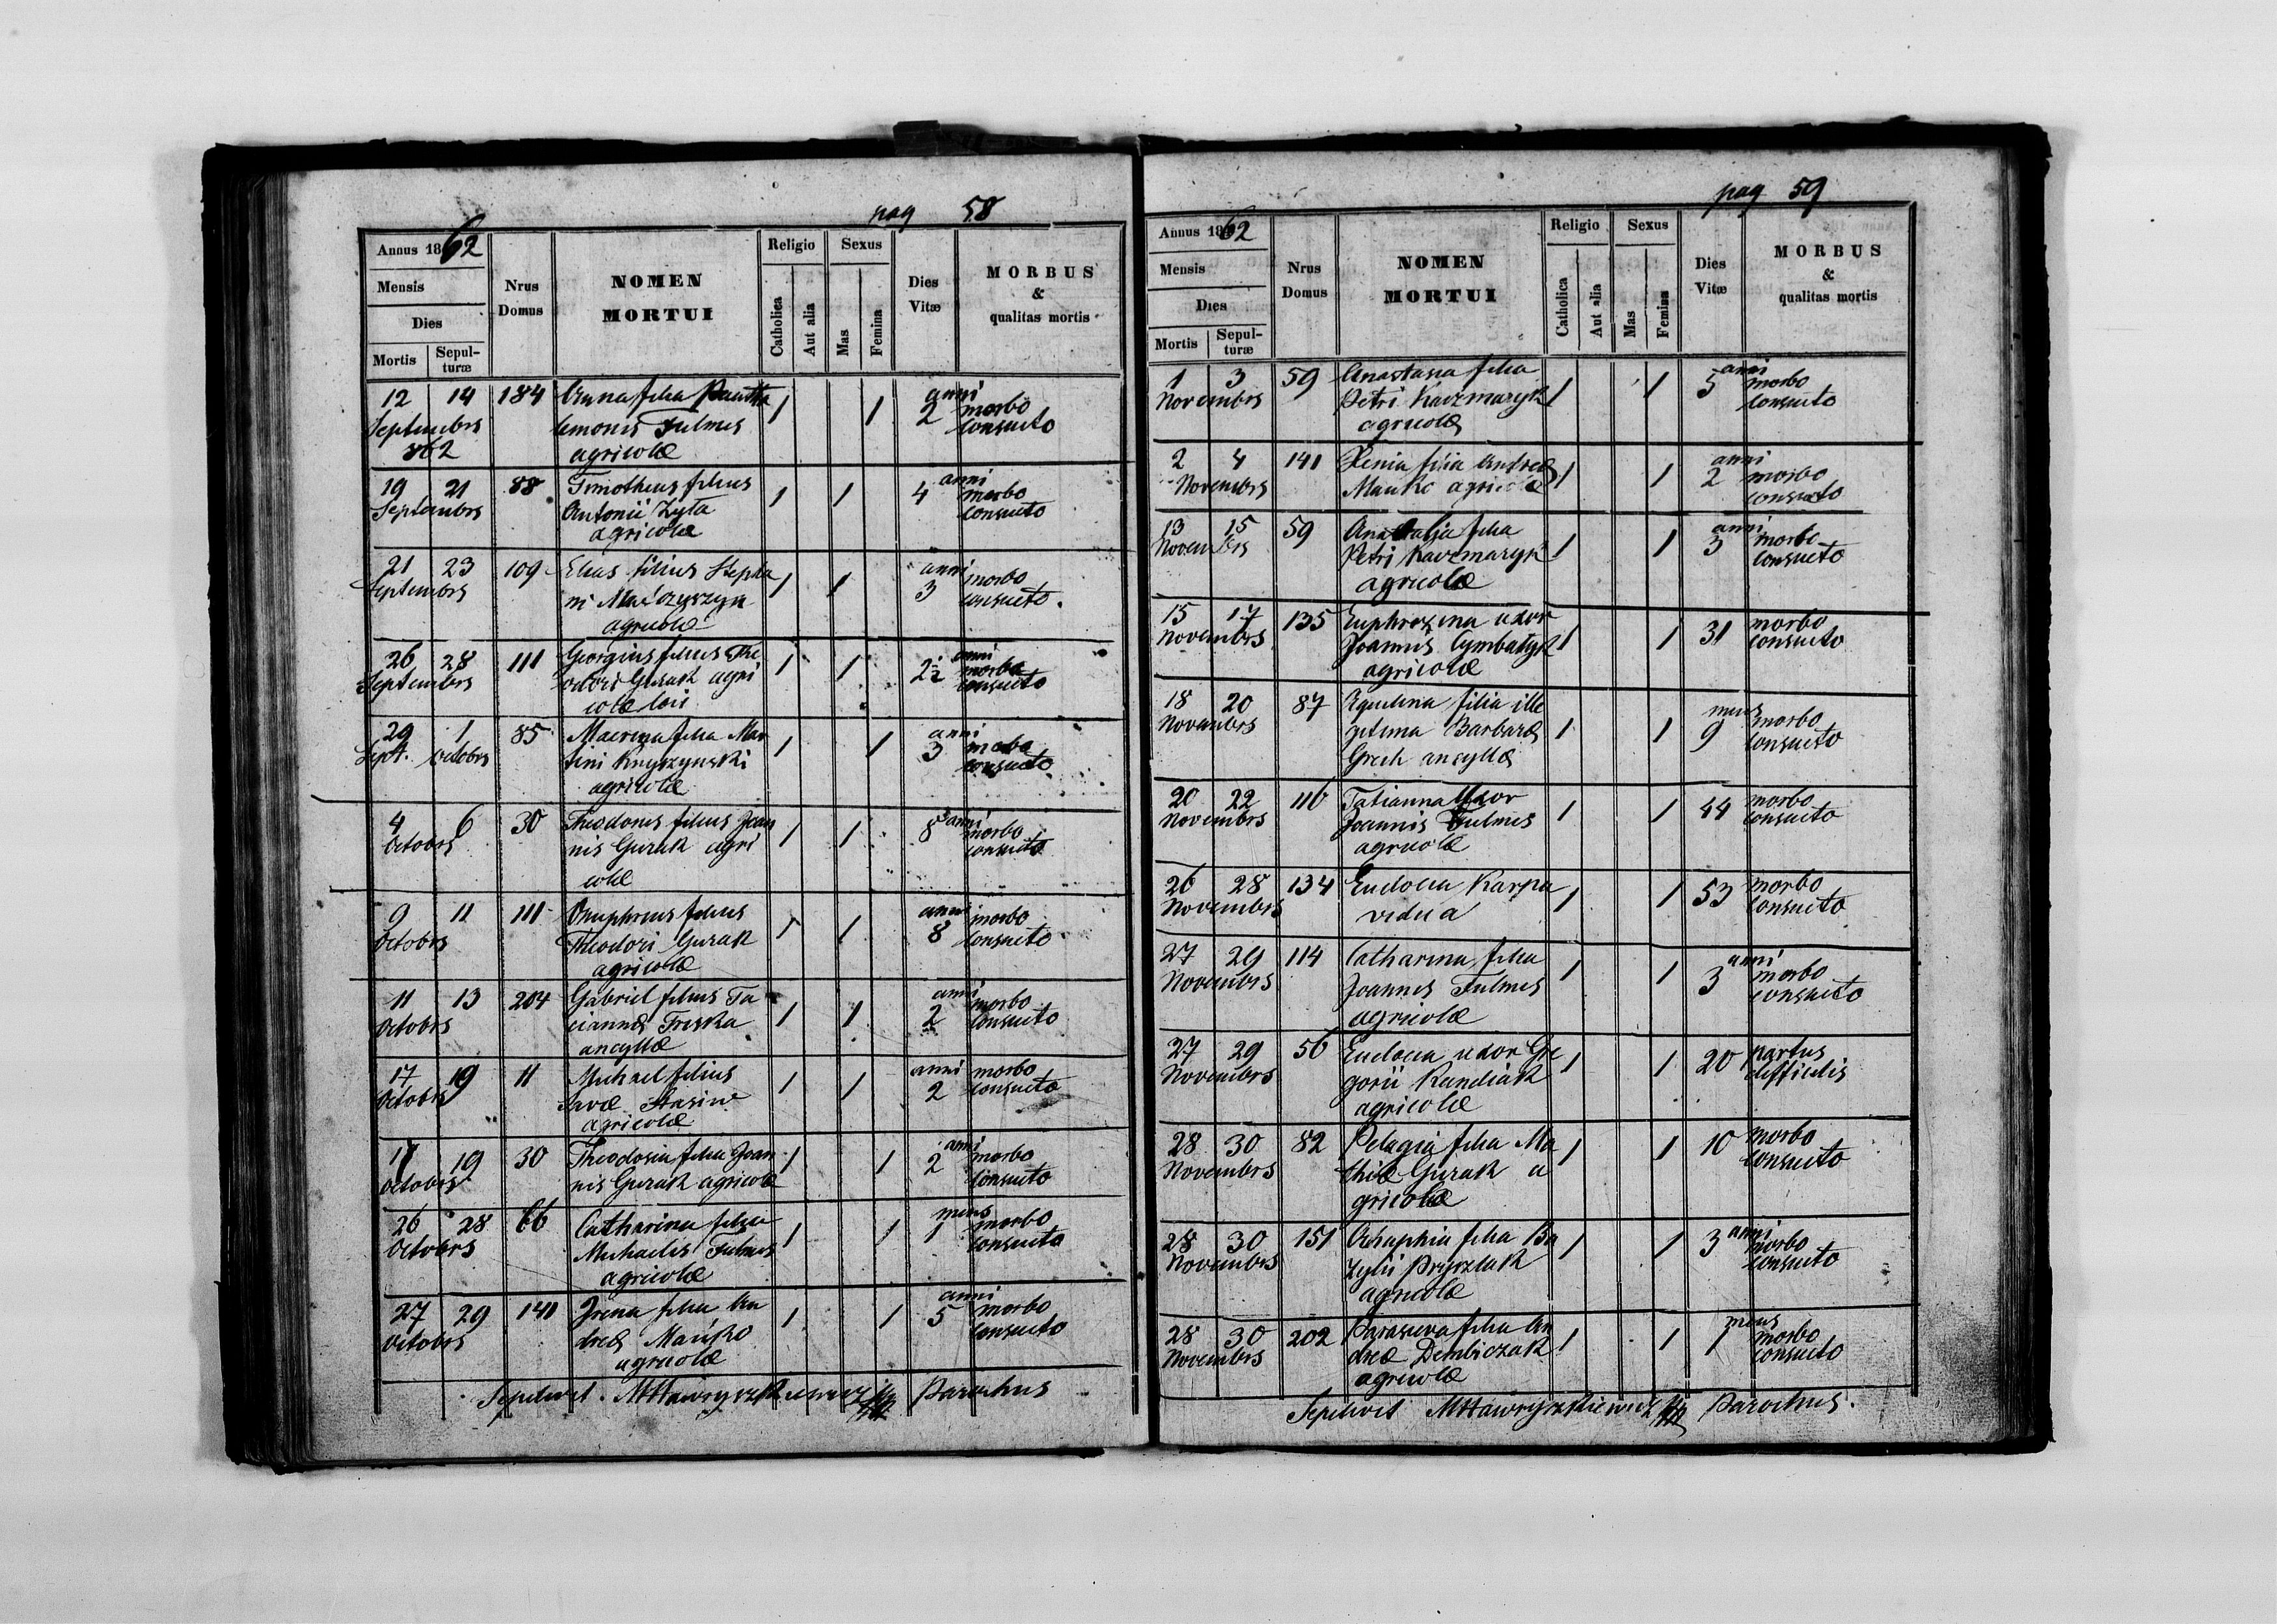 pag 58
Annus 1862
Mensis
Dies
Mortis
Sepulturæ
Nrus Domus
NOMEN MORTUI
Religio
Catholica
Aut alia
Sexus
Mas
Femina
Dies Vitæ
MORBUS & qualitas mortis
12 14 184 Anna filia Pantha 1 1 anni
Septembrs lemonis Fulmes 2 morbo
862 agricolæ consueto
19 21 88 Timotheus filius 1 1 anni
Septembrs Antonii Zyla 4 morbo
agricolæ consueto
21 23 109 Elias filius Stepha 1 1 anni
Septembrs ni Maćzyszyn 3 morbo
agricolæ consueto.
26 28 111 Georgius filius The 1 1 anni
Septembrs odori Gurak agri 2½ morbo
colæ consueto
29 1 85 Macrina filia Mar 1 1 anni
Sept. Octobrs tini Knyszynski 3 morbo
agricolæ consueto
4 6 30 Theodorus filius Joan 1 1 8 anni
Octobrs nis Gurak agri morbo
colæ consueto
9 11 111 Onuphrius filius 1 1 anni morbo
Octobrs Theodori Gurak 8 consueto
agricolæ
11 13 204 Gabriel filius Ta 1 1 anni
Octobrs ciannæ Freska 2 morbo
ancyllæ consueto
17 19 11 Michael filius 1 1 anni morbo
Octobrs Savæ Stasiw 2 consueto
agricolæ
17 19 30 Theodosia filia Joan 1 1 2 anni morbo
Octobrs nis Gurak agricolæ consueto
26 28 66 Catharina filia 1 1 mens
Octobrs Michaelis Fulmes 1 morbo
agricolæ consueto
27 29 141 Irena filia An 1 1 anni
Octobrs dreæ Mańko 5 morbo
agricolæ consueto
Sepelivit MHawryszkiewicz Parochus
pag 59
Annus 1862
Mensis
Dies
Mortis
Sepulturæ
Nrus Domus
NOMEN MORTUI
Religio
Catholica
Aut alia
Sexus
Mas
Femina
Dies Vitæ
MORBUS & qualitas mortis
1 3 59 Anastasia filia 1 1 5 anni
Novembrs Petri Kaczmaryk morbo
agricolæ consueto
2 4 141 Xenia filia Andreæ 1 1 anni
Novembrs Mańko agricolæ 2 morbo
consueto
13 15 59 Anatalja filia 1 1 anni
Novembrs Petri Kaczmaryk 3 morbo
agricolæ consueto
15 17 135 Euphrozina uxor 1 1 31 morbo
Novembrs Joannis Cymbalyk consueto
agricolæ
18 20 87 Aquilina filia ille 1 1 mens
Novembrs gitima Barbaræ 9 morbo
Grech ancyllæ consueto
20 22 116 Tatianna Uxor 1 1 44 morbo
Novembrs Joannis Fulmes consueto
agricolæ
26 28 134 Eudocia Karpa 1 1 53 morbo
Novembrs vidua consueto
27 29 114 Catharina filia 1 1 3 anni
Novembrs Joannes Fulmes morbo
agricolæ consueto
27 29 56 Eudocia uxor Gre 1 1 20 partus
Novembrs gorii Kundiak difficilis
agricolæ
28 30 82 Pelagia filia Ma 1 1 10 morbo
Novembrs thiæ Gurak a consueto
gricolæ
28 30 151 filia Ba 1 1 3 anni
Novembrs zylii Pryszlak morbo
agricolæ consueto
28 30 202 Parasceva filia An 1 1 mens
Novembrs dreæ Dembiczak 1 morbo
agricolæ consueto
Sepelivit MHawryszkiewicz Parochus.